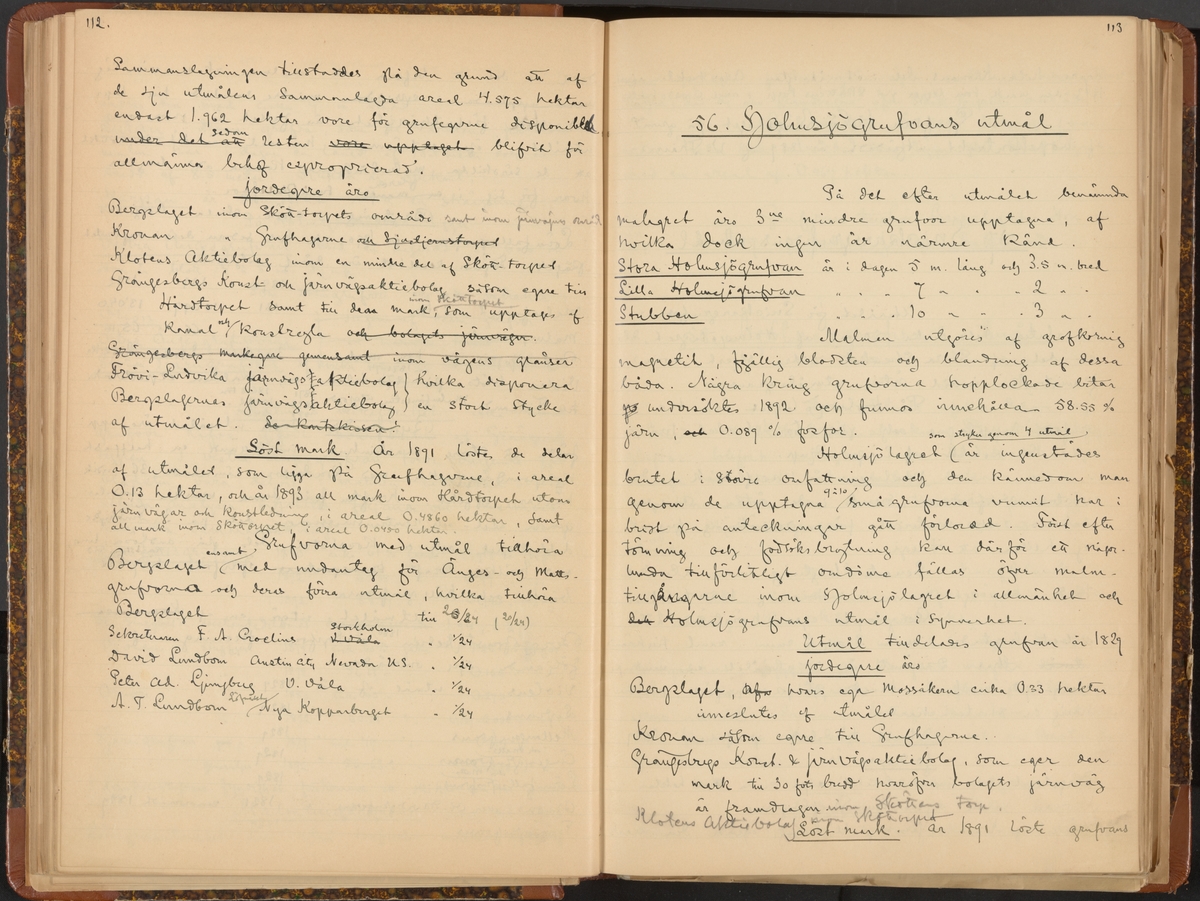 112.
Sammanslagningen tillstaddes på den grund att af
de sju utmålens sammanlagda areal 4.575 hektar
endast 1.962 hektar vore för grufegarne disponibla
under det att sedan resten vore upptaget blifvit för
allmänna behof exproprierad.
Jordegare äro
Bergslaget inom Skött-torpets område samt inom
Kronan " Grufhagarne och Sjutjernstorpet
Klotens Aktiebolag inom en mindre del af Skött-torpet
Grängesbergs Konst och järnvägsaktiebolag såsom egare till
Hårdtorpet samt till dess mark, inom Skötttorpet som upptages af
kanal och konstregla och bolagets järnvägar.
Grängesbergs markegare gemensamt inom vägens gränser
Frövi-Ludvika järnvägsaktiebolag } hvilka disponera
Bergslagernes järnvägsaktiebolag } en stort stycke
af utmålet.
Löst mark År 1891 löstes de delar
af utmålet, som ligga på Grufhagarne, i areal
0.13 hektar, och år 1893 all mark inom Hårdtorpet utom
järnvägar och konstledning, i areal 0.4860 hektar, samt
all mark inom Skötttorpet, i areal 0.0400 hektar.
Grufvorna med utmål tillhöra
Bergslaget ensamt med undantag för Änges- och Matts-
grufvorna och deras förra utmål, hvilka tillhöra
Bergslaget till 20/24 (20/24)
Sekreteraren F. A. Croelius Stockholm V. Våla " 1/24
David Lundbom Austin City Nevada U.S. " 1/24
Peter Ad. Ljungberg V. Våla " 1/24
A. T. Lundbom Nya Kopparberget " 1/24
113
56. Holmsjögrufvans utmål
På det efter utmålet benämnda
malagret äro 3ne mindre grufvor upptagna, af
hvilka dock ingen är närmre känd.
Stora Holmsjögrufvan är i dagen 5 m. lång och 3.5 m. bred
Lilla Holmsjögrufvan " " " 7 " " " 2 " "
Stubben " " " 10 " " " 3 " "
Malmen utgöres af grofkornig
magnetit, fjällig blodsten och blandning af dessa
båda. Några kring grufvorna hopplockade bitar
undersöktes 1892 och funnos innehålla 58.55 %
järn, och 0.089 % fosfor.
Holmsjölagret som stryker genom 4 utmål, är ingenstädes
brutet i större omfattning och den kännedom man
genom de upptagna små grufvorna vunnit har i
brist på anteckningar gått förlorad. Först efter
tömning och försöksbrytning kan därför ett någor-
lunda tillförlitligt omdöme fällas öfver malm-
tillgångarne inom Holmsjölagret i allmänhet och
Holmsjögrufvans utmål i synnerhet.
Utmål tilldelades grufvan år 1829
Jordegare äro
Bergslaget, hvars ega Mossåkern cirka 0.23 hektar
inneslutes af utmålet
Kronan såsom egare till Grufhagarne.
Grängesbergs Konst- & järnvägsaktiebolag, som eger den
mark till 30 fots bredd hvaröfver bolagets järnväg
är framdragen inom Sköttens torp.
Klotens Aktiebolag inom Skötttorpet
Löst mark. År 1891 löste grufvans